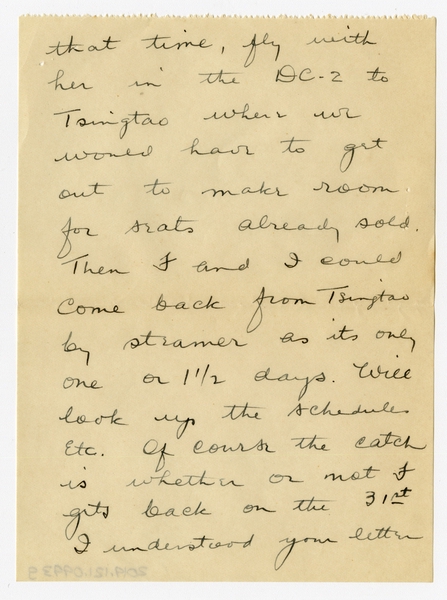 that time, fly with
her in the DC-2 to
Tsingtao where we
would have to get
out to make room
for seats already sold.
Then F and I could
come back from Tsingtao
by steamer as its only
one or 1 1/2 days. Will
look up the schedules
etc. Of course the catch
is whether or not F
gets back on the 31st
I understood your letter
2019.121.0993 g